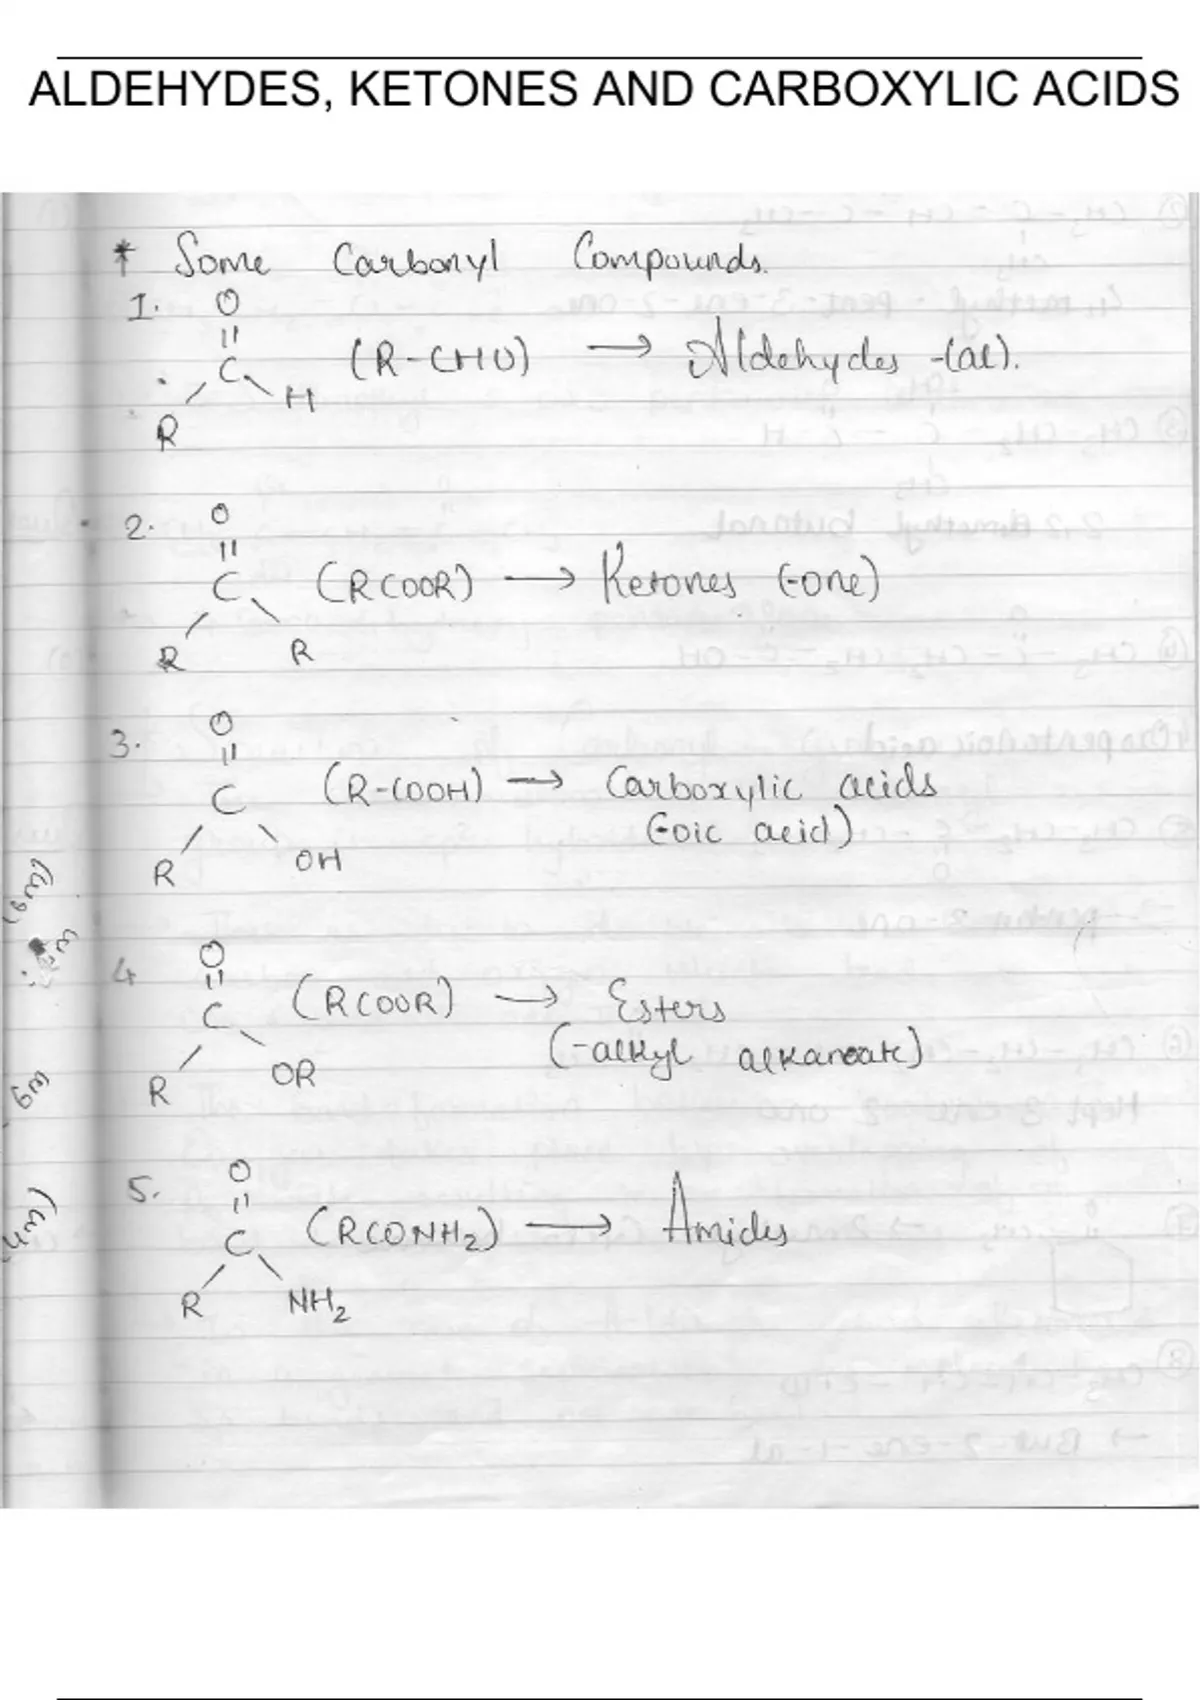 ALDEHYDES, KETONES AND CARBOXYLIC ACIDS
* Some Carbonyl Compounds.
1. O
||
C (R-CHO) → Aldehydes -(al).
R H
2. O
||
C (RCOOR') → Ketones (-one)
R R
3. O
||
C (R-COOH) → Carboxylic acids
(-oic acid)
R OH
4 O
||
C (RCOOR) → Esters
(-alkyl alkanoate)
R OR
5. O
||
C (RCONH₂) → Amides
R NH₂